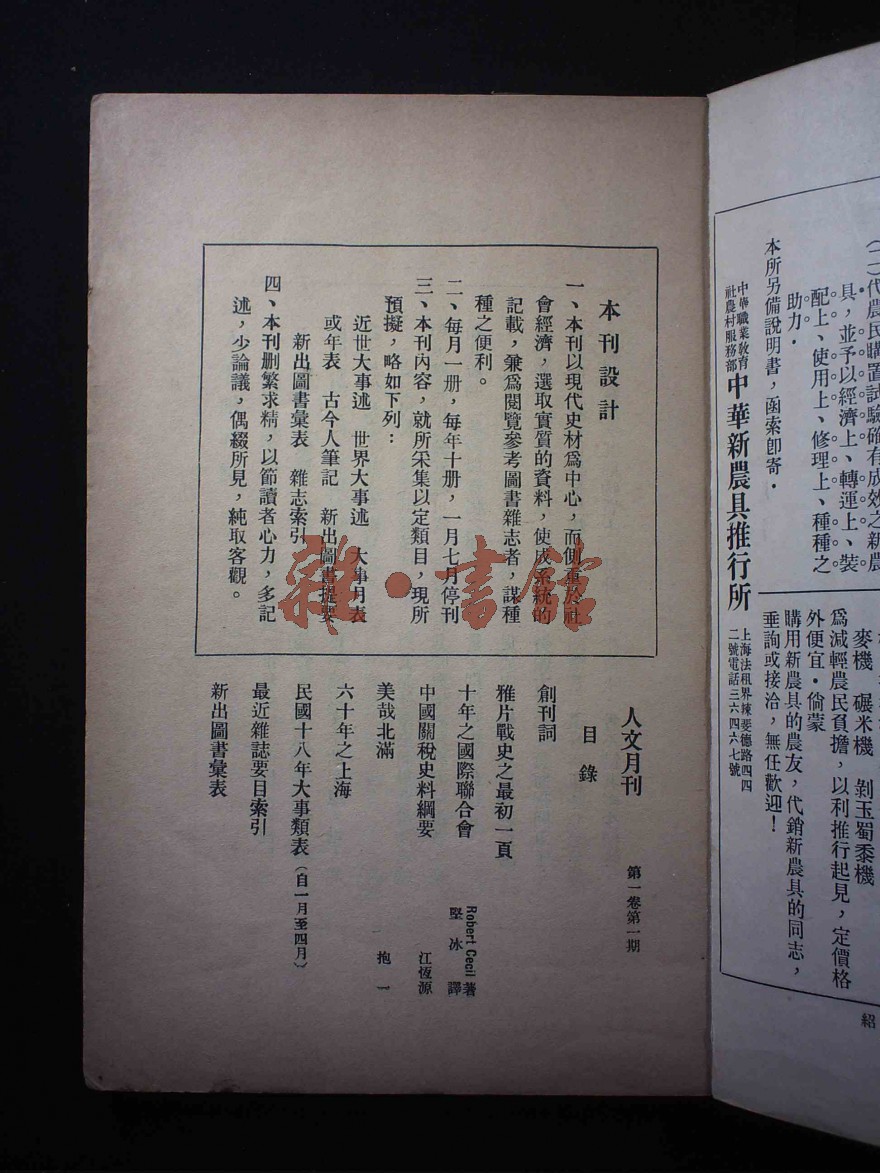 本刊設計
一、本刊以現代史材爲中心，而側重於社
會經濟，選取實質的資料，使成系統的
記載，兼爲閱覽參考圖書雜志者，謀種
種之便利。
二、每月一册，每年十册，一月七月停刊
三、本刊內容，就所采集以定類目，現所
預擬，略如下列：
近世大事述　世界大事述　大事月表
或年表　古今人筆記　新出圖書提要
新出圖書彙表　雜志索引
四、本刊删繁求精，以節讀者心力，多記
述，少論議，偶綴所見，純取客觀。
人文月刊　第一卷第一期
目錄
創刊詞
雅片戰史之最初一頁
十年之國際聯合會　Robert Cecil著
堅冰　譯
中國關稅史料綱要　江恆源
美哉北滿　抱一
六十年之上海
民國十八年大事類表（自一月至四月）
最近雜誌要目索引
新出圖書彙表
代農民購置試驗確有成效之新農
具，並予以經濟上、轉運上、裝
配上、使用上、修理上、種種之
助力．
本所另備說明書，函索卽寄．
中華職業敎育
社農村服務部
中華新農具推行所
上海法租界辣斐德路四四
二號電話三六四六七號
麥機　碾米機　剝玉蜀黍機
爲減輕農民負擔，以利推行起見，定價格
外便宜．倘蒙
購用新農具的農友，代銷新農具的同志，
垂詢或接洽，無任歡迎！
紹
雜·書館